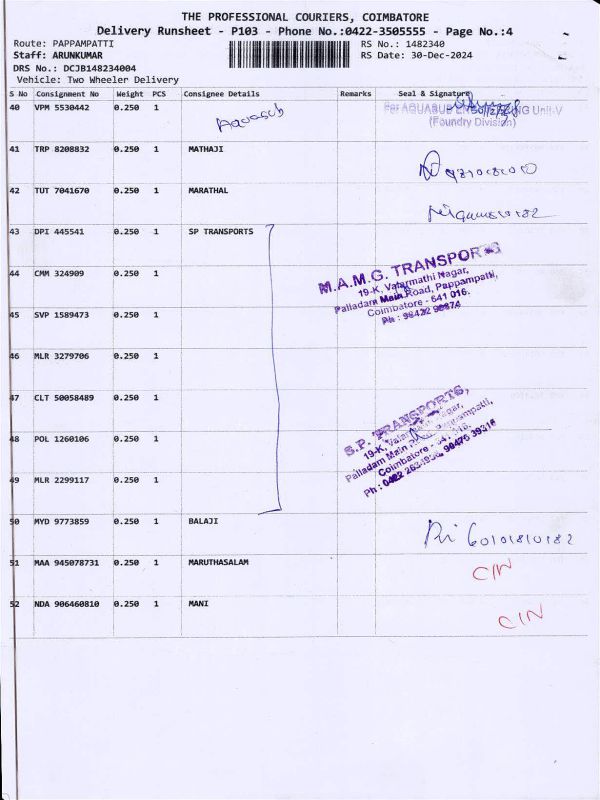 THE PROFESSIONAL COURIERS, COIMBATORE
Delivery Runsheet - P103 - Phone No.:0422-3505555 - Page No.:4
Route: PAPPAMPATTI RS No.: 1482340
Staff: ARUNKUMAR RS Date: 30-Dec-2024
DRS No.: DCJB148234004
Vehicle: Two Wheeler Delivery
S No Consignment No Weight PCS Consignee Details Remarks Seal & Signature
40 VPM 5530442 0.250 1 Aquasub For AQUASUB ENGINEERING Unit-V
(Foundry Division)
41 TRP 8208832 0.250 1 MATHAJI
42 TUT 7041670 0.250 1 MARATHAL
43 DPI 445541 0.250 1 SP TRANSPORTS
M.A.M.G. TRANSPORTS
44 CMM 324909 0.250 1 19-K, Valarmathi Nagar,
Palladam Main Road, Pappampatti,
Coimbatore - 641 016.
45 SVP 1589473 0.250 1 Ph : 98422 98874
46 MLR 3279706 0.250 1
47 CLT 50058489 0.250 1
S.P. TRANSPORTS,
48 POL 1260106 0.250 1 19-K, Nagar,
Palladam Main Pappampatti,
Coimbatore
49 MLR 2299117 0.250 1 Ph : 0422 98475 39316
50 MYD 9773859 0.250 1 BALAJI
51 MAA 945078731 0.250 1 MARUTHASALAM CIN
52 NDA 906460810 0.250 1 MANI CIN